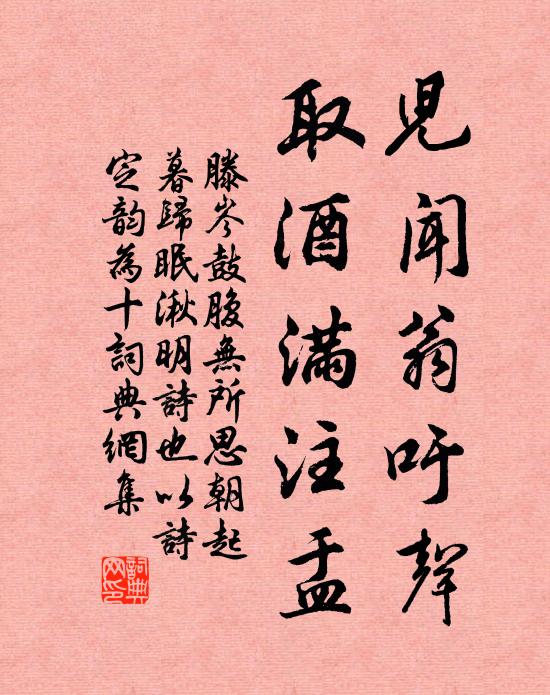 兒聞翁吁聲
取酒滿注盂
滕岑鼓腹無所思朝起
暮歸眠湫明詩也以詩
定韵為十詞典網集
詞典
网印